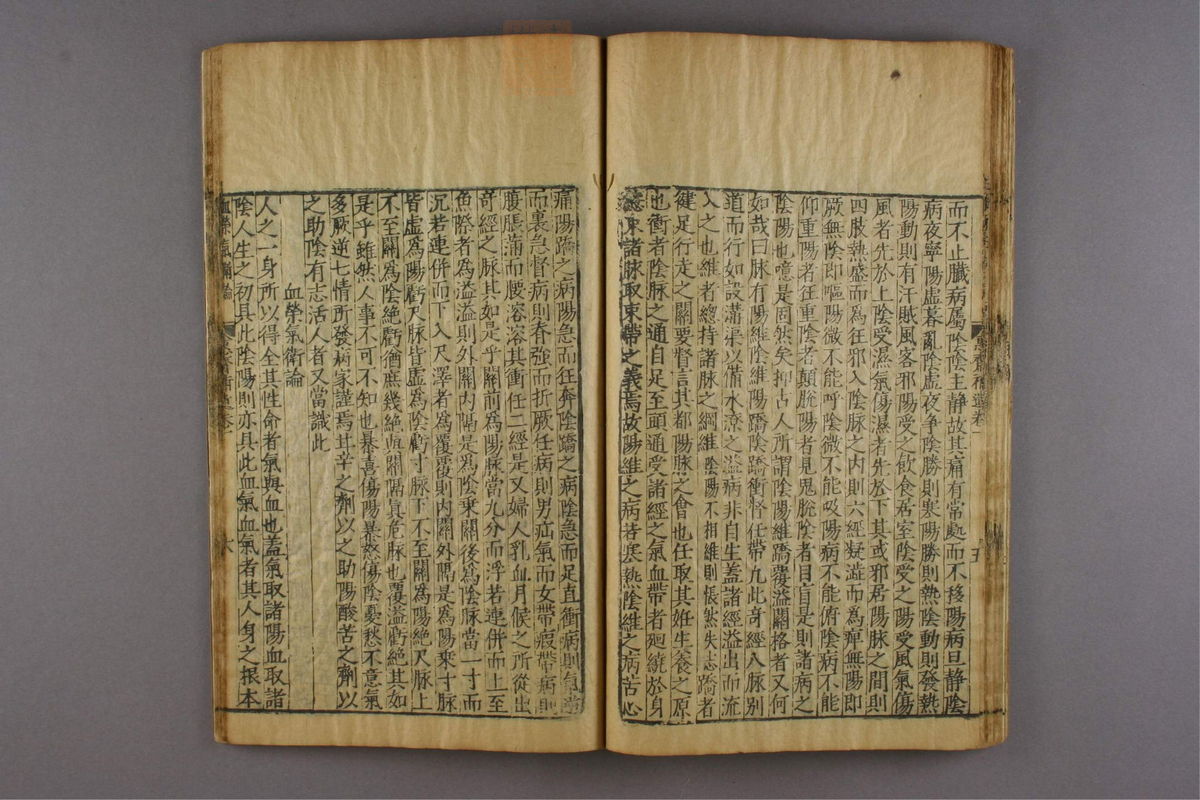 而不止臓病屬陰陰主静故其痛有常處而不移陽病旦静陰
病夜寧陽虚暮亂陰虚夜争陰勝則寒陽勝則熱陰動則發熱
陽動則有汗賊風客邪陽受之飲食居室陰受之陽受風氣傷
風者先於上陰受濕氣傷濕者先於下其或邪居陽脉之間則
四肢熱盛而為狂邪入陰脉之内則六經凝澁而為痺無陽即
厥無陰即嘔陽微不能呼陰微不能吸陽病不能俯陰病不能
仰重陽者狂重陰者顛脫陽者見鬼脫陰者目盲是則諸病之
陰陽也噫是固然矣抑古人所謂陰陽維蹻覆溢關格者又何
如哉曰脉有陽維陰維陽蹻陰蹻衝督任帶九此竒經八脉别
道而行如設溝渠以備水潦之溢病非自生蓋諸經溢出而流
入之也維者緫持諸脉之綱維陰陽不相維則悵然失志蹻者
健足行走之關要督言其都陽脉之會也任取其姙生養之原
也衝者陰脉之通自足至頭通受諸經之氣血帶者廻繞於身
緫束諸脉取束帶之義焉故陽維之病若寒熱陰維之病苦心
痛陽蹻之病陽急而狂奔陰蹻之病陰急而足直衝病則氣
而裏急督病則脊強而折厥任病則男疝氣而女帶瘕帶病則
腹脹滿而腰溶溶其衝任二經是又婦人乳血月候之所從出
竒經之脉其如是乎關前為陽脉當九分而浮若連併而上至
魚際者為溢溢則外關内隔是為陰乗關後為陰脉當一寸而
沉若連併而下入尺澤者為覆覆則内關外隔是為陽乗寸脉
皆虚為陽虧尺脉皆虚為陰虧寸脉下不至關為陽絶尺脉上
不至關為陰絶虧猶庶幾絶與關隔真危脉也覆溢虧絶其如
是乎雖然人事不可不知也暴喜傷陽暴怒傷陰憂愁不意氣
多厥逆七情所發病家謹焉甘辛之劑以之助陽酸苦之劑以
之助陰有志活人者又當識此
血榮氣衛論
人之一身所以得全其性命者氣與血也蓋氣取諸陽血取諸
陰人生之初具此陰陽則亦具此血氣血氣者其人身之根本
六